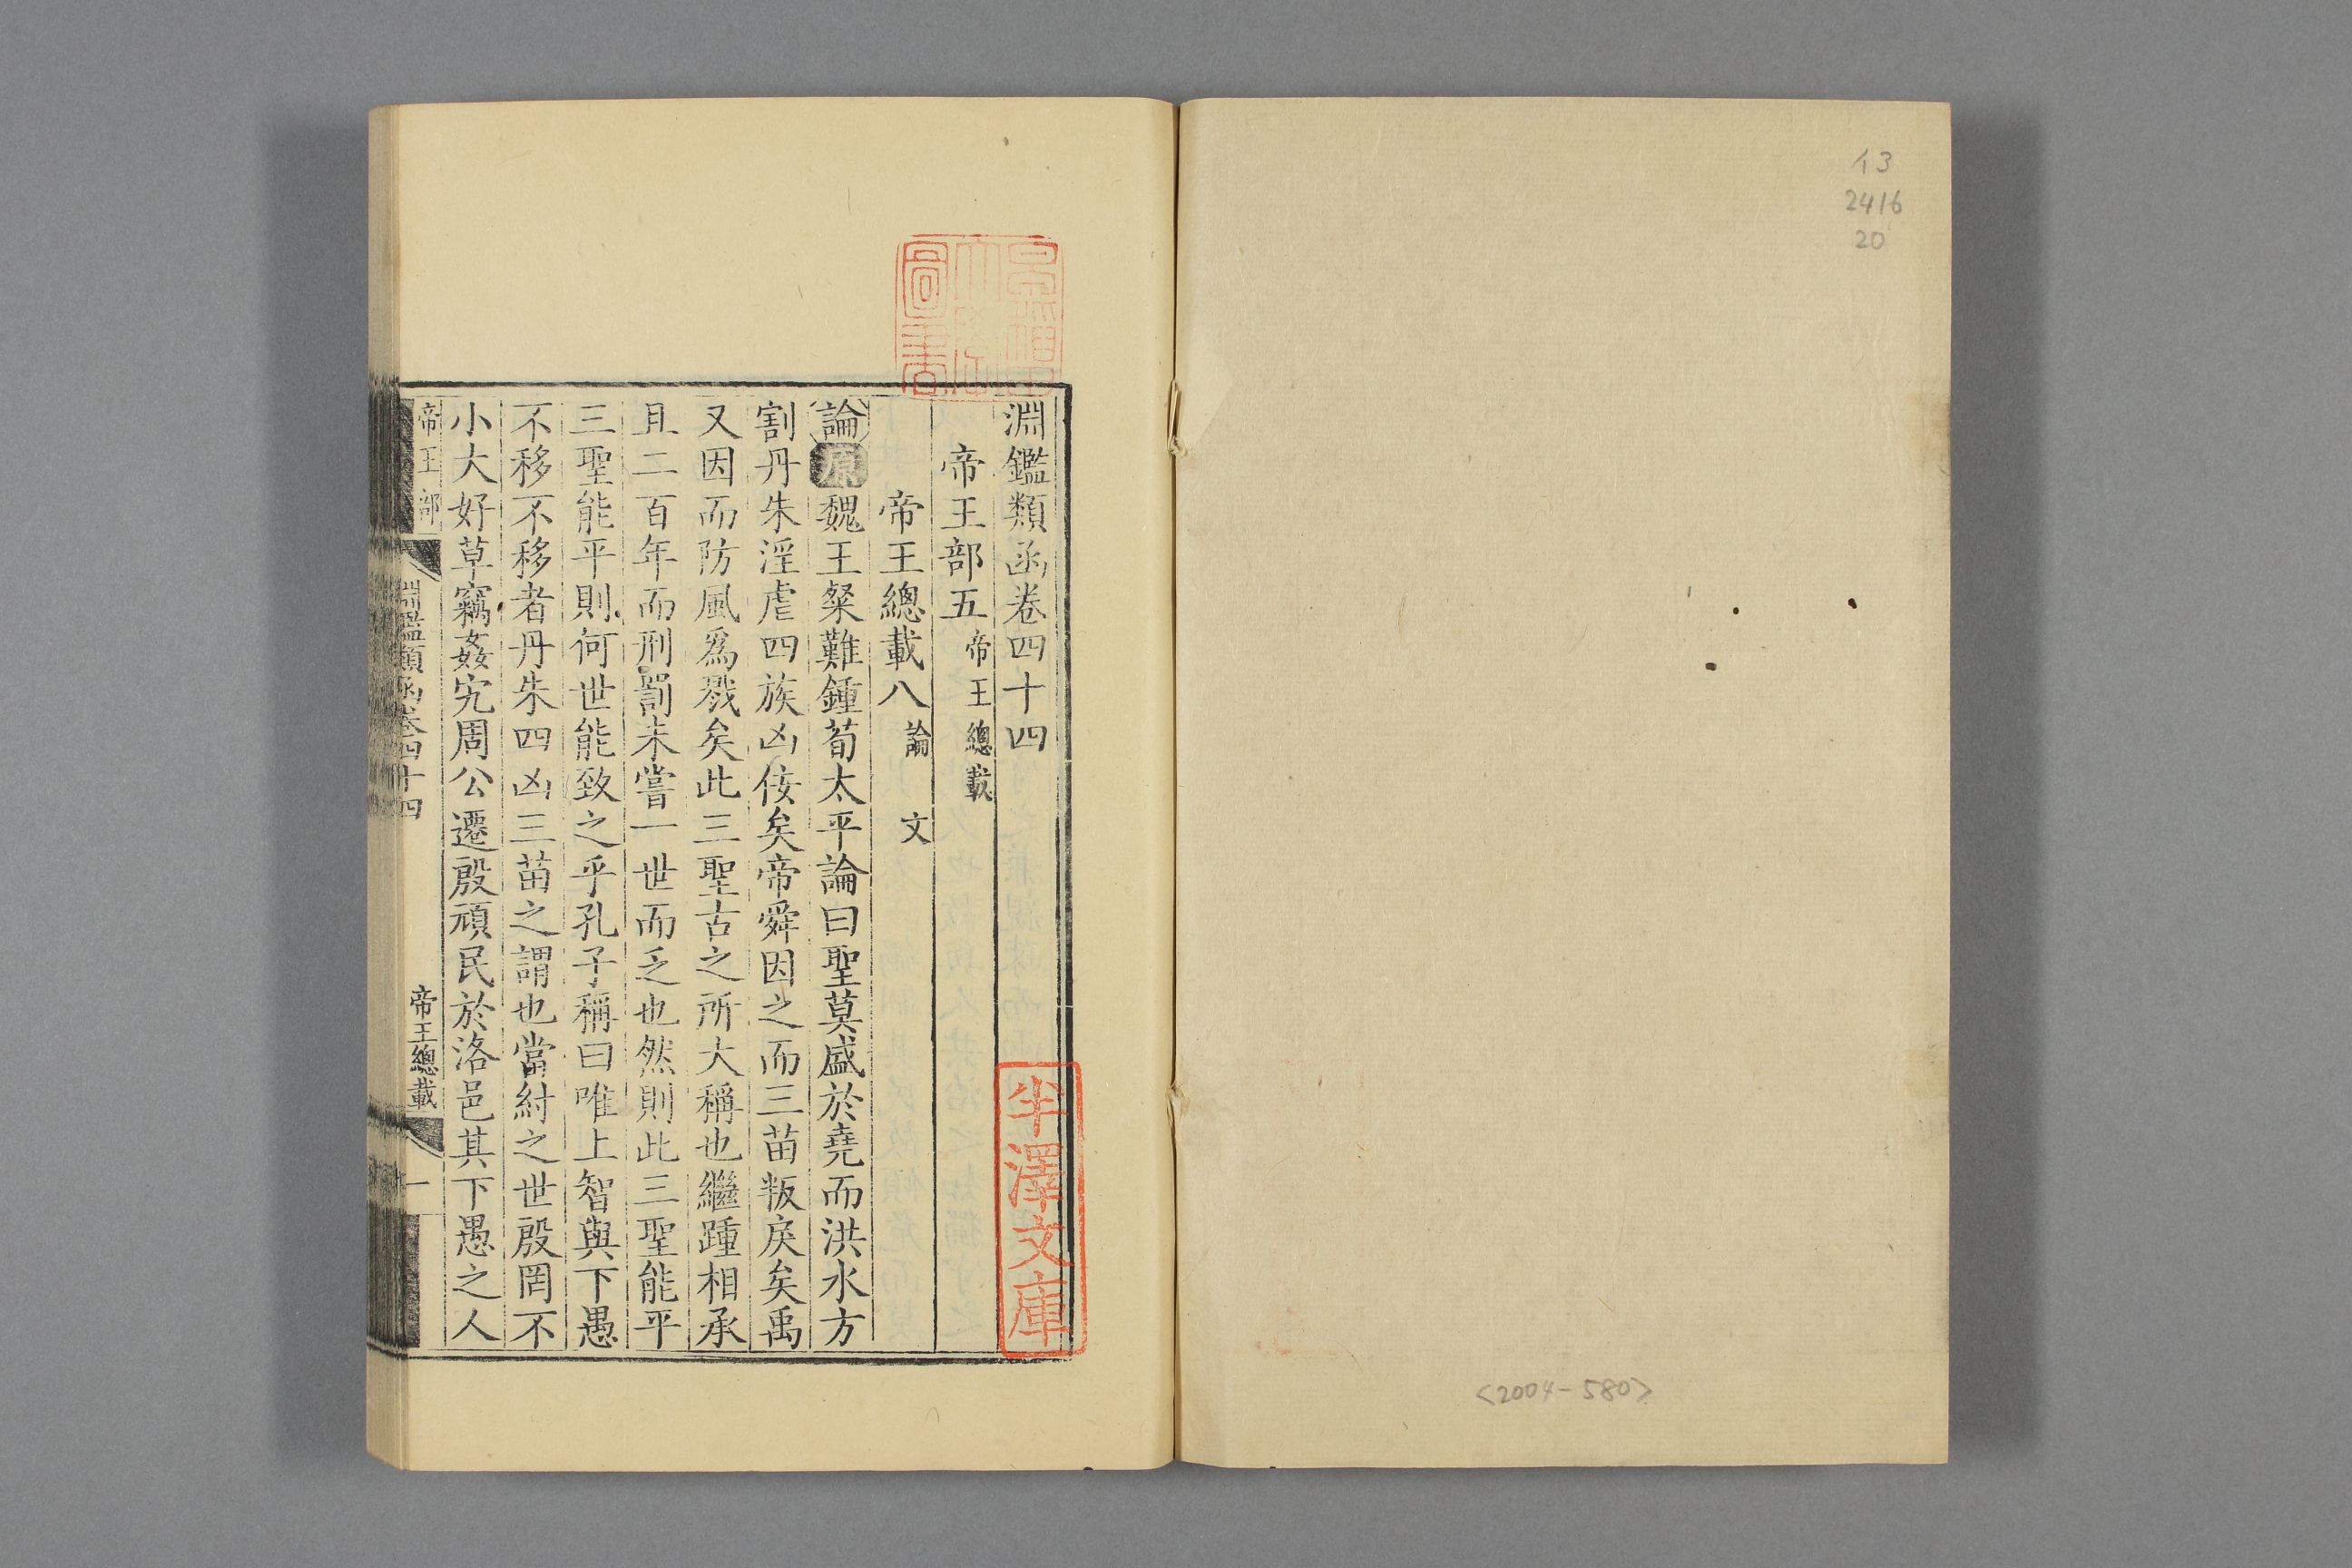 13
2416
20
<2004-580>
淵鑑類函卷四十四
帝王部五 帝王總載
帝王總載八 論 文
論 原 魏王粲難鍾荀太平論曰聖莫盛於堯而洪水方
割丹朱淫虐四族凶佞矣帝舜因之而三苗叛戾矣禹
又因而防風爲戮矣此三聖古之所大稱也繼踵相承
且二百年而刑罰未嘗一世而乏也然則此三聖能平
三聖能平則何世能致之乎孔子稱曰唯上智與下愚
不移不移者丹朱四凶三苗之謂也當紂之世殷罔不
小大好草竊姦宄周公遷殷頑民於洛邑其下愚之人
帝王部 淵鑑類函卷四十四 帝王總載 一
半澤文庫
圖書